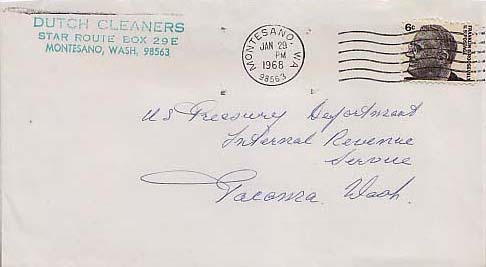 DUTCH CLEANERS
STAR ROUTE BOX 29E
MONTESANO, WASH. 98563
MONTESANO, WA
JAN 29
PM
1968
98563
6c
US Treasury Department
Internal Revenue
Service
Tacoma Wash.